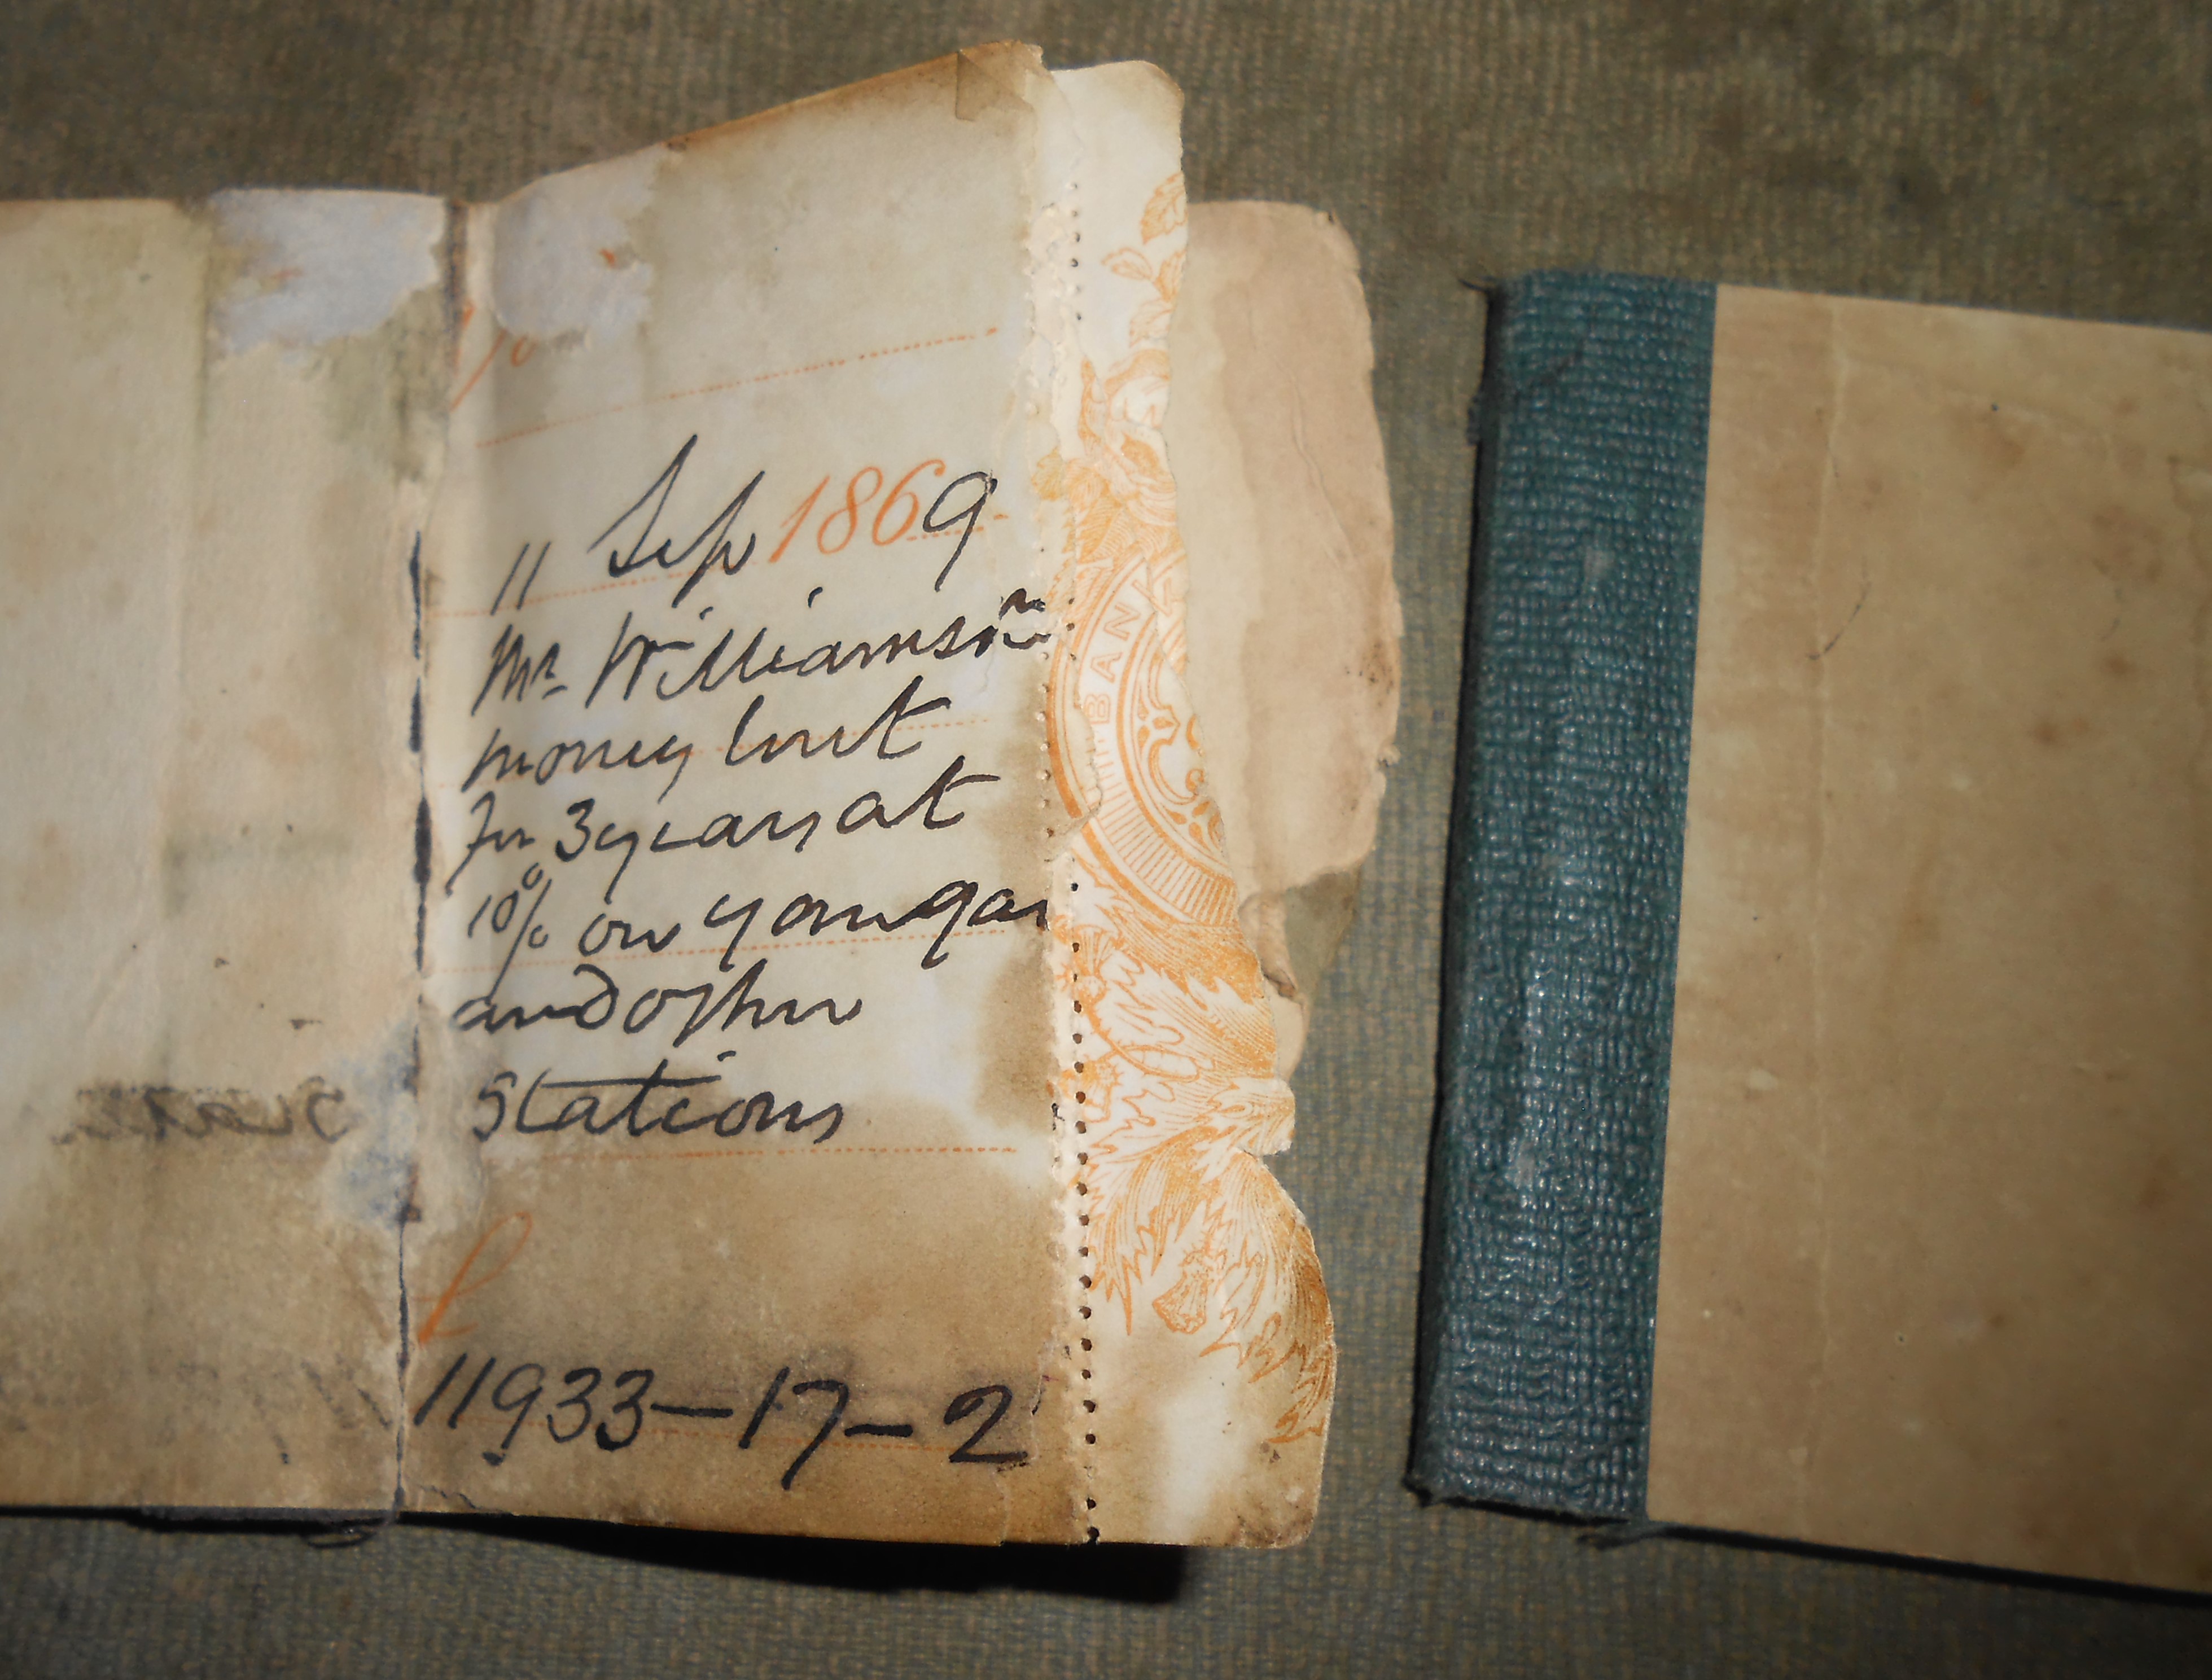 No
11 Sep 1869
Mr. Williamson
money lent
for 3 years at
10% on yongar
and other
Stations
£
11933-17-2
BANK